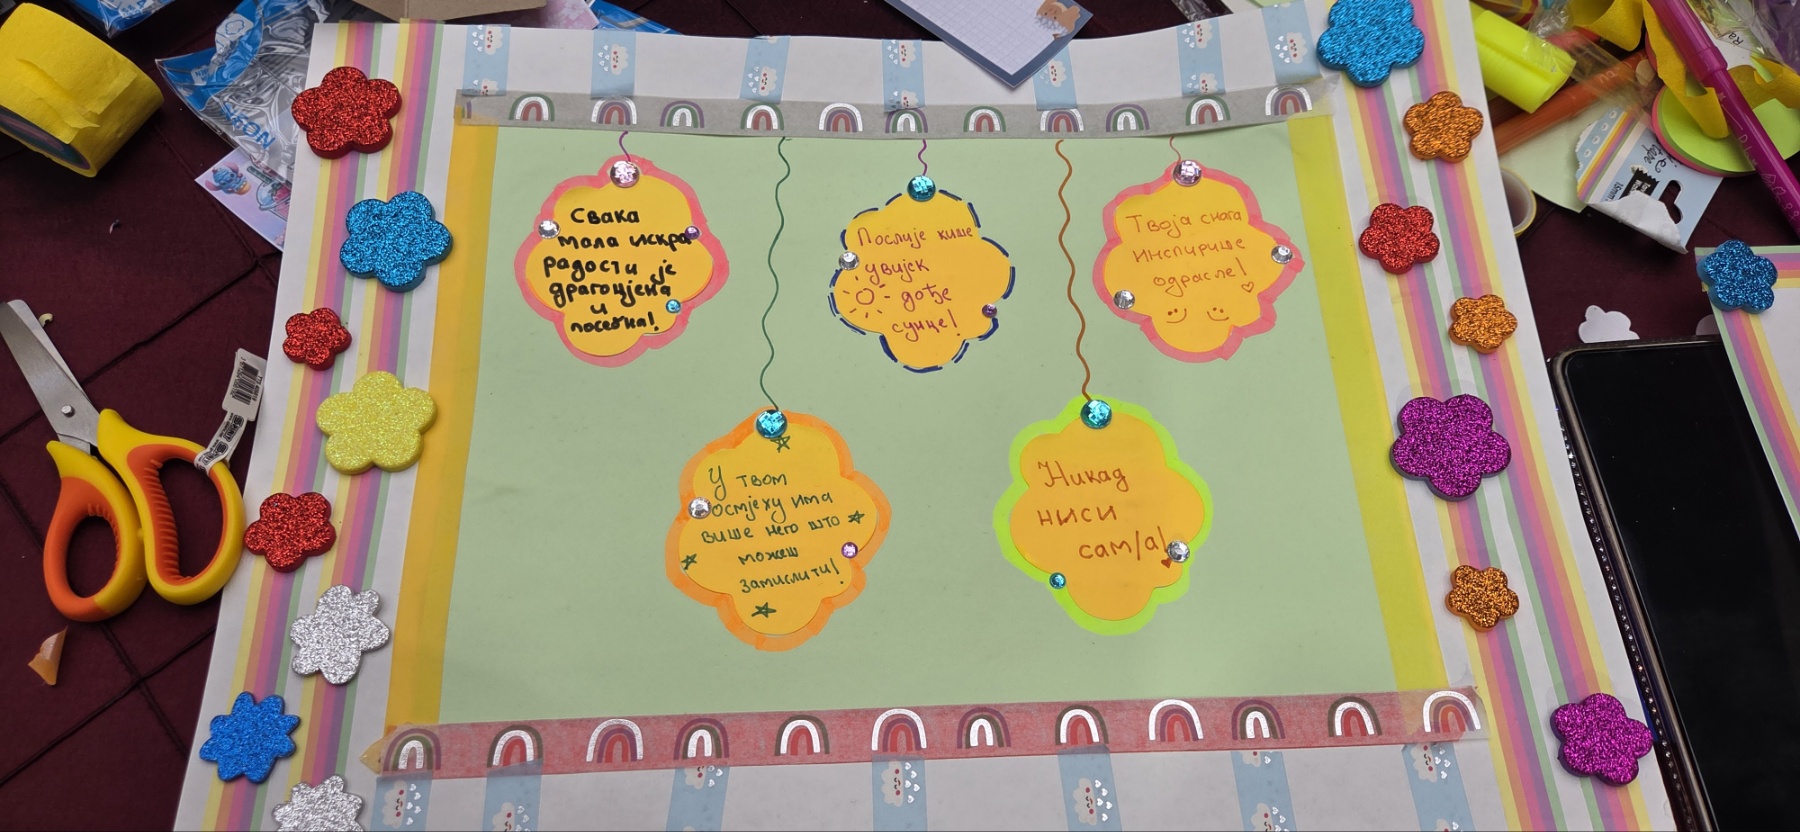 Свака
мала искра
радости је
драгоцјена
и
посебна!
Послије кише
увијек
дође
сунце!
Твоја снага
инспирише
одрасле!
У твом
осмјеху има
више него што
можеш
замислити!
Никад
ниси
сам/а!